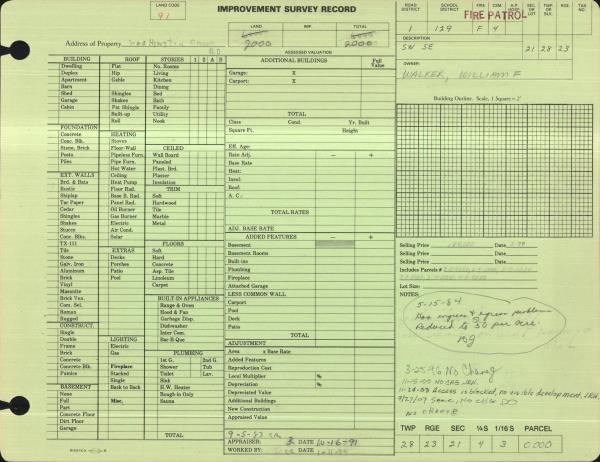 LAND CODE
91
IMPROVEMENT SURVEY RECORD
ROAD DISTRICT
SCHOOL DISTRICT
FIRE PATROL
SEC OR LOT
TWP OR BLK
RGE
TAX NO
1 129 F 4
SW SE 21 28 23
LAND
TOTAL
2000 2000
Address of Property
ASSESSED VALUATION
OWNER:
WALKER, WILLIAM F
BUILDING
Dwelling
Duplex
Apartment
Barn
Shed
Garage
Cabin
ROOF
Flat
Hip
Gable
Dormer
Shingles
Shakes
Pat Shingle
Built-up
Rail
STORIES 1 2 A B
No. Rooms
Living
Kitchen
Dining
Bed
Bath
Family
Utility
Nook
FOUNDATION
Concrete
Conc. Blk.
Stone, Brick
Posts
Piles
HEATING
Stoves
Floor-Wall
Pipeless Furn.
Pipe Furn.
Hot Water
Ceiling
Heat Pump
Floor Rad.
Base B. Rad.
Panel Rad.
Oil Burner
Gas Burner
Electric
Air Cond.
Solar
CEILED
Wall Board
Panel
Paneled
Plast. Brd.
Plaster
Insulation
TRIM
Soft
Hardwood
Tile
Marble
Metal
EXT. WALLS
Brd. & Bats
Rustic
Shiplap
Tar Paper
Cedar
Shingles
Shakes
Stucco
Conc. Blks.
TX-111
Tile
Stone
Galv. Iron
Aluminum
Brick
Vinyl
Masonite
Brick Ven.
Com. Sel.
Roman
Rugged
EXTRAS
Decks
Porches
Patio
Pool
FLOORS
Soft
Hard
Concrete
Asp. Tile
Linoleum
Carpet
BUILT-IN APPLIANCES
Range & Oven
Hood & Fan
Garbage Disp.
Dishwasher
Inter Com.
Bar-B-Que
CONSTRUCT.
Single
Double
Frame
Brick
Concrete
Concrete Blk.
Pumice
LIGHTING
Electric
Gas
Fireplace
Stacked
Single
Back to Back
Misc.
PLUMBING
1st G. 2nd G.
Shower Tub
Toilet Lav.
Sink
H.W. Heater
Rough-in Only
Sauna
BASEMENT
None
Full
Part
Concrete Floor
Dirt Floor
Garage
TOTAL
ADDITIONAL BUILDINGS Full Value
Garage: X
Carport: X
TOTAL
Class Cond. Yr. Built
Square Ft. Height
Eff. Age:
Rate Adj. − +
Base Rate
Heat:
Insul:
Roof:
A. C.:
TOTAL RATES
ADJ. BASE RATE
ADDED FEATURES − +
Basement
Basement Rooms
Built-ins
Plumbing
Fireplace
Attached Garage
LESS COMMON WALL
Carport
Pool
Deck
Patio
TOTAL
ADJUSTMENT
Area x Base Rate
Added Features
Reproduction Cost
Local Multiplier %
Depreciation %
Depreciated Value
Additional Buildings
New Construction
Appraised Value
9-5-83
APPRAISED BY 10-16-91
WORKED BY
Building Outline. Scale, 1 Square = 2'
Selling Price Date
Selling Price Date
Includes Parcels #
Lot Size:
NOTES
5-15-84
Has ingress & egress problem
Reduced to 50 per acre.
3-25-96 No Chang
11-24-03 Access is blocked, no visible development, JRH
No change
TWP RGE SEC ¼S 1/16 S PARCEL
28 23 21 4 3 0000